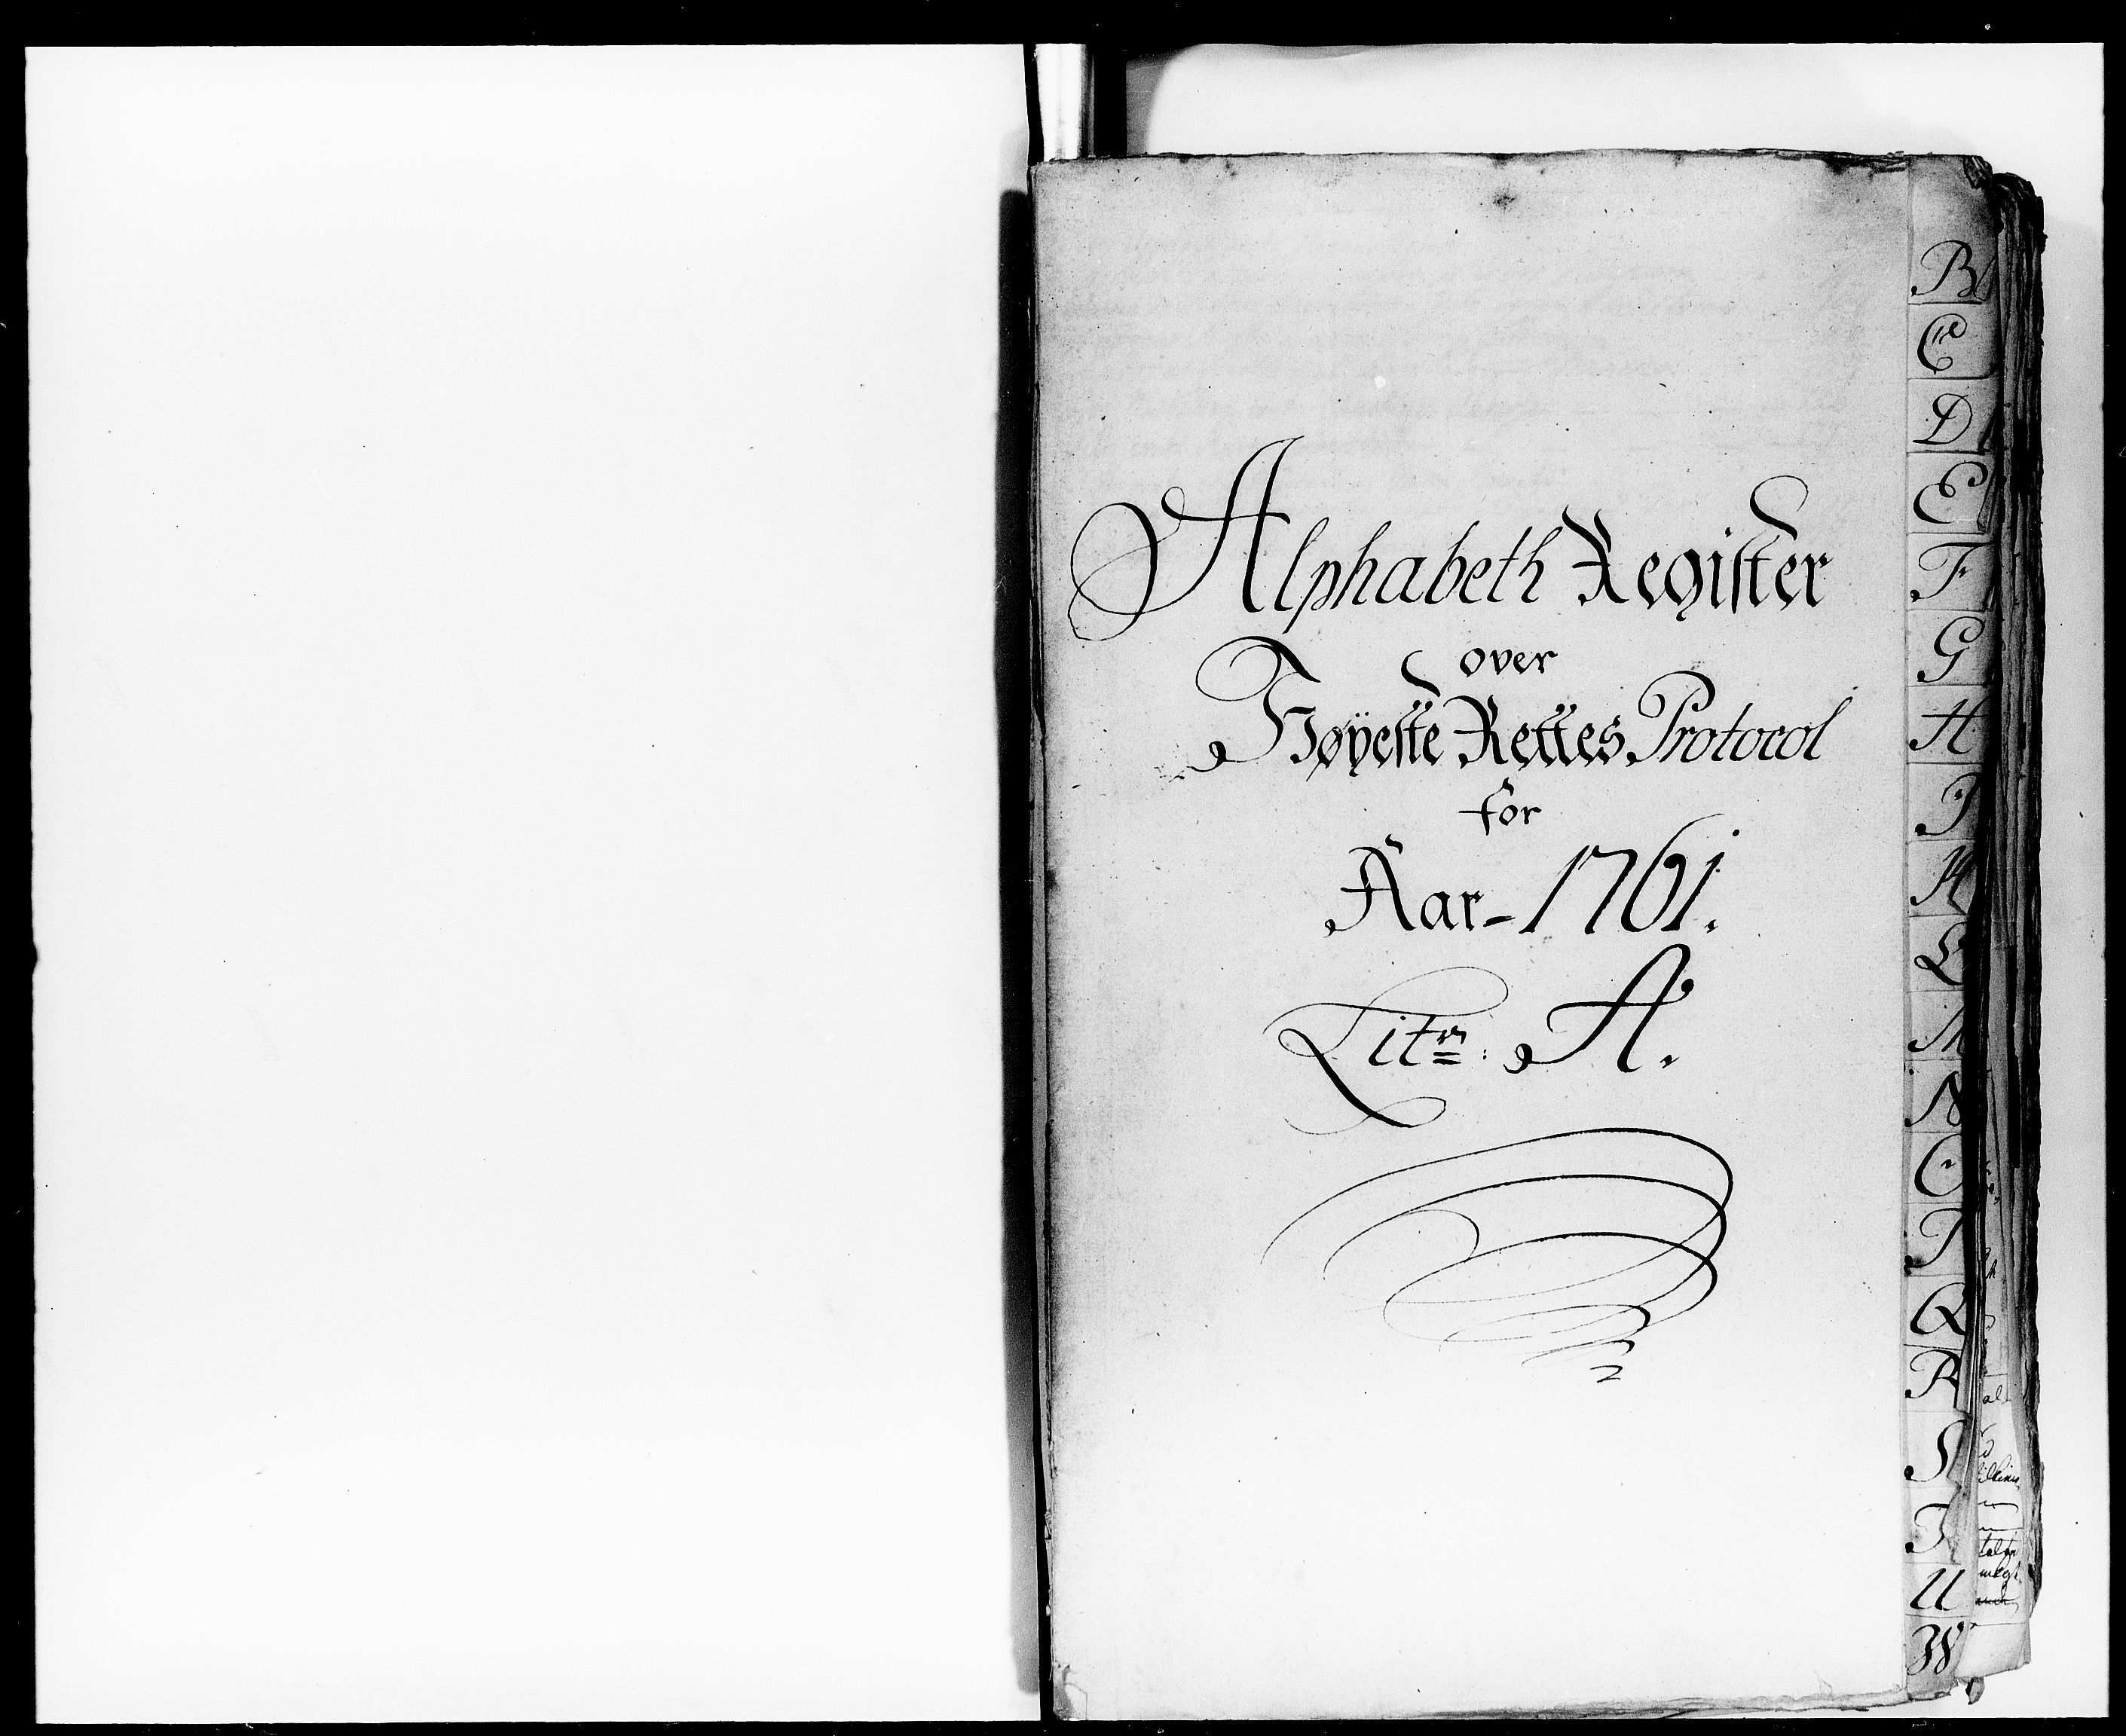 Alphabeth Register
over
Høyeste Rettes Protocol
for
Aar - 1761.
Litr: A.
B
C
D
E
F
G
H
I
K
L
M
N
O
P
Q
R
S
T
U
W